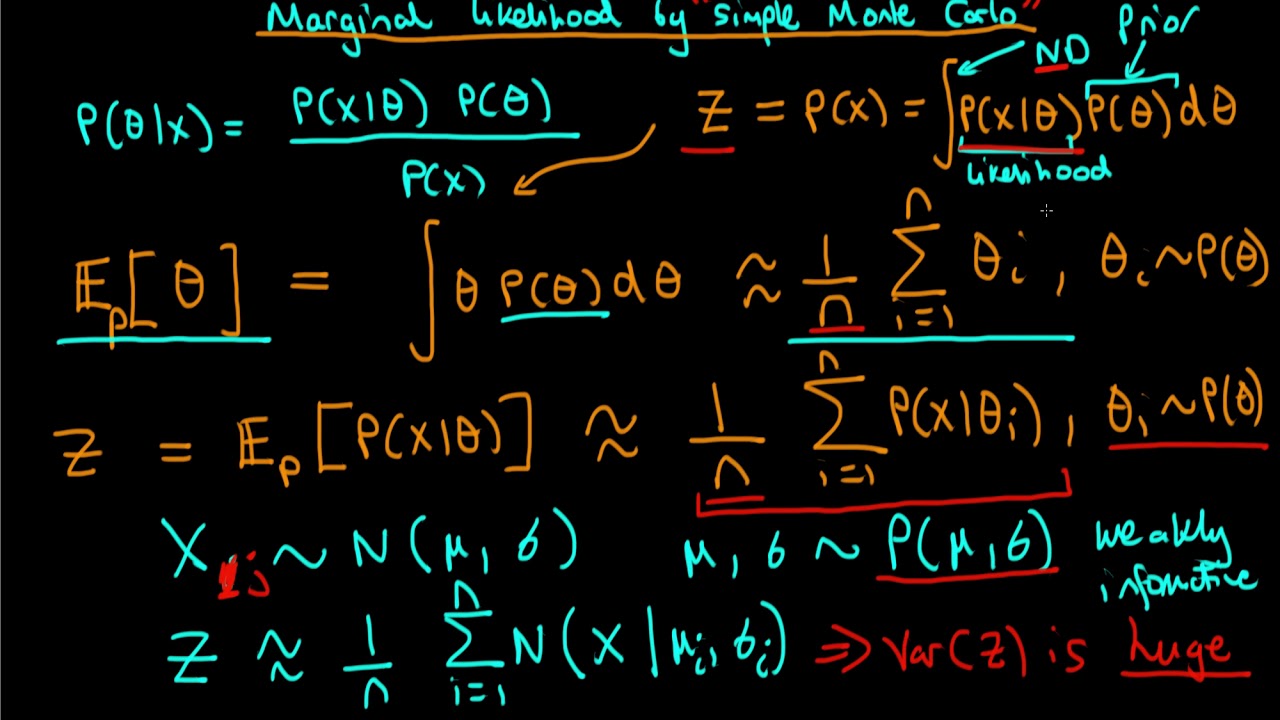 Marginal likelihood by "simple Monte Carlo"
ND Prior
P(θ|x) = P(X|θ) P(θ) / P(X)
Z = P(X) = ∫ P(X|θ) P(θ) dθ
likelihood
𝔼_p[θ] = ∫ θ P(θ) dθ ≈ 1/n Σ_{i=1}^{n} θ_i , θ_i ~ P(θ)
Z = 𝔼_p[P(X|θ)] ≈ 1/n Σ_{i=1}^{n} P(X|θ_i) , θ_i ~ P(θ)
X_{15} ~ N(μ, σ) μ, σ ~ P(μ, σ) weakly
informative
Z ≈ 1/n Σ_{i=1}^{n} N(X|μ_i, σ_i) ⇒ Var(Z) is huge